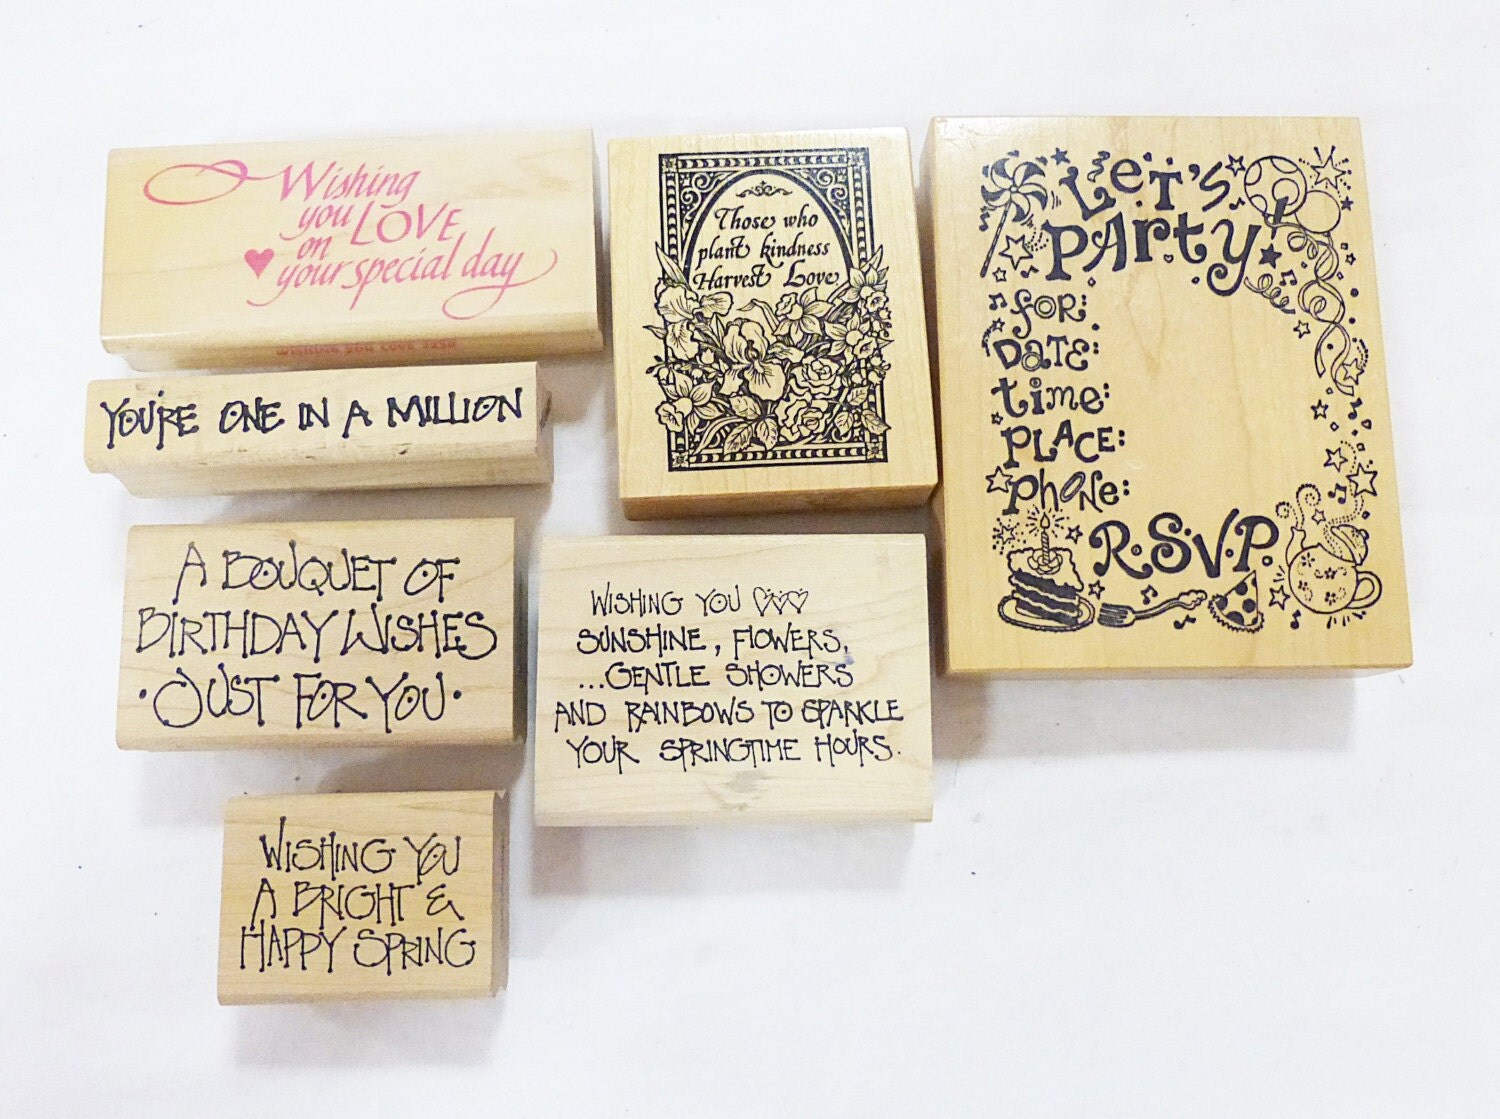 Wishing
you LOVE
on
your special day
wishing you love 325D
YOU'RE ONE IN A MILLION
A BOUQUET OF
BIRTHDAY WISHES
• JUST FOR YOU •
WISHING YOU
A BRIGHT &
HAPPY SPRING
Those who
plant kindness
Harvest Love
WISHING YOU ♡♡♡
SUNSHINE, FLOWERS,
...GENTLE SHOWERS
AND RAINBOWS TO SPARKLE
YOUR SPRINGTIME HOURS.
LET'S
PARTY!
FOR:
DATE:
time:
PLACE:
phONe:
R·S·V·P.